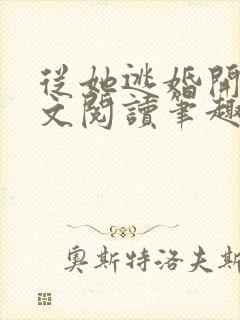 從她逃婚開
文閱讀筆趣
奧斯特洛夫斯